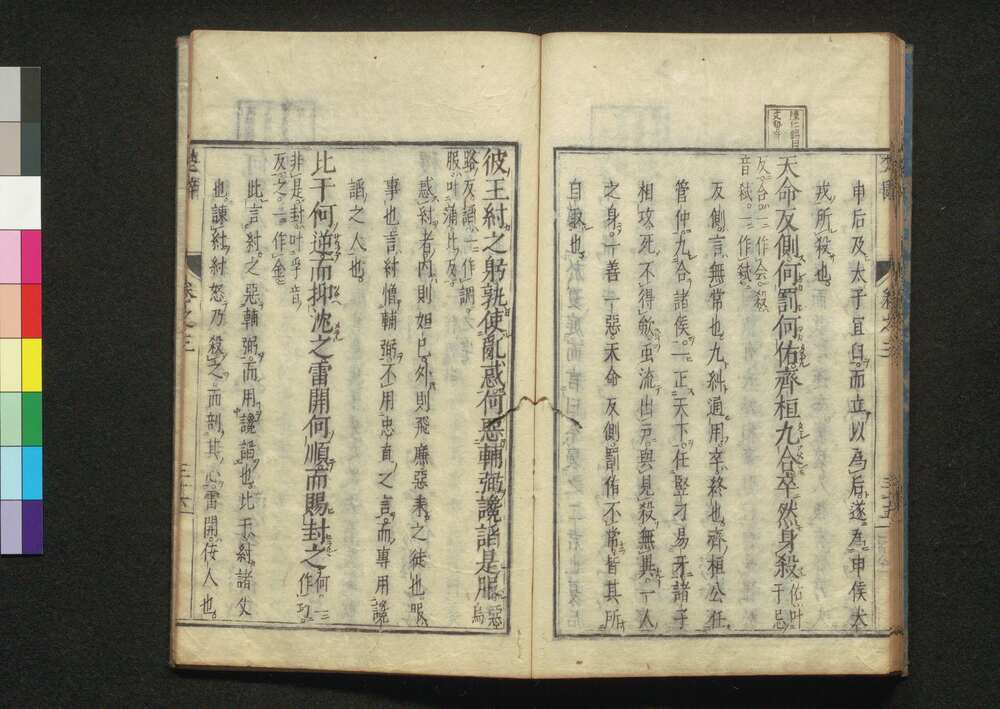 申后及太子宜臼而立以為后遂為申侯犬
戎所殺也
天命反側何罰何佑齊桓九合卒然身殺佑叶于忌
反合一作會殺
音弒一作弒
反側言無常也九糾通用卒終也齊桓公任
管仲九合諸侯一正天下任豎刁易牙諸子
相攻死不得斂虫流出戶與見殺無異一人
之身一善一惡天命反側罰佑不常皆其所
自取也
卷之三
三十五
彼王紂之躬孰使亂惑何惡輔弼讒諂是服惡烏
路反諂一作謟
服叶蒲北反
惑紂者內則妲己外則飛廉惡來之徒也服
事也言紂憎輔弼不用忠直之言而專用讒
諂之人也
比干何逆而抑沈之雷開何順而賜封之何一作巧
非是封叶孚音
反之一作金
此言紂之惡輔弼而用讒諂也比干紂諸父
也諫紂紂怒乃殺之而剖其心雷開佞人也
楚辭
卷之三
三十六